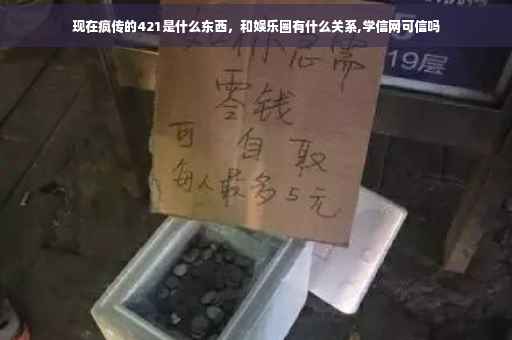 现在疯传的421是什么东西，和娱乐圈有什么关系,学信网可信吗
如你急需
零钱
可自取
每人最多5元
19层